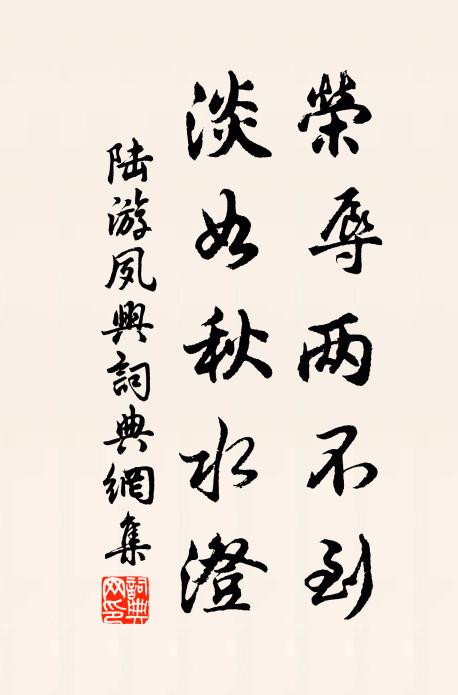 榮辱两不到
淡如秋水澄
陆游夙興詞典網集
詞典网印